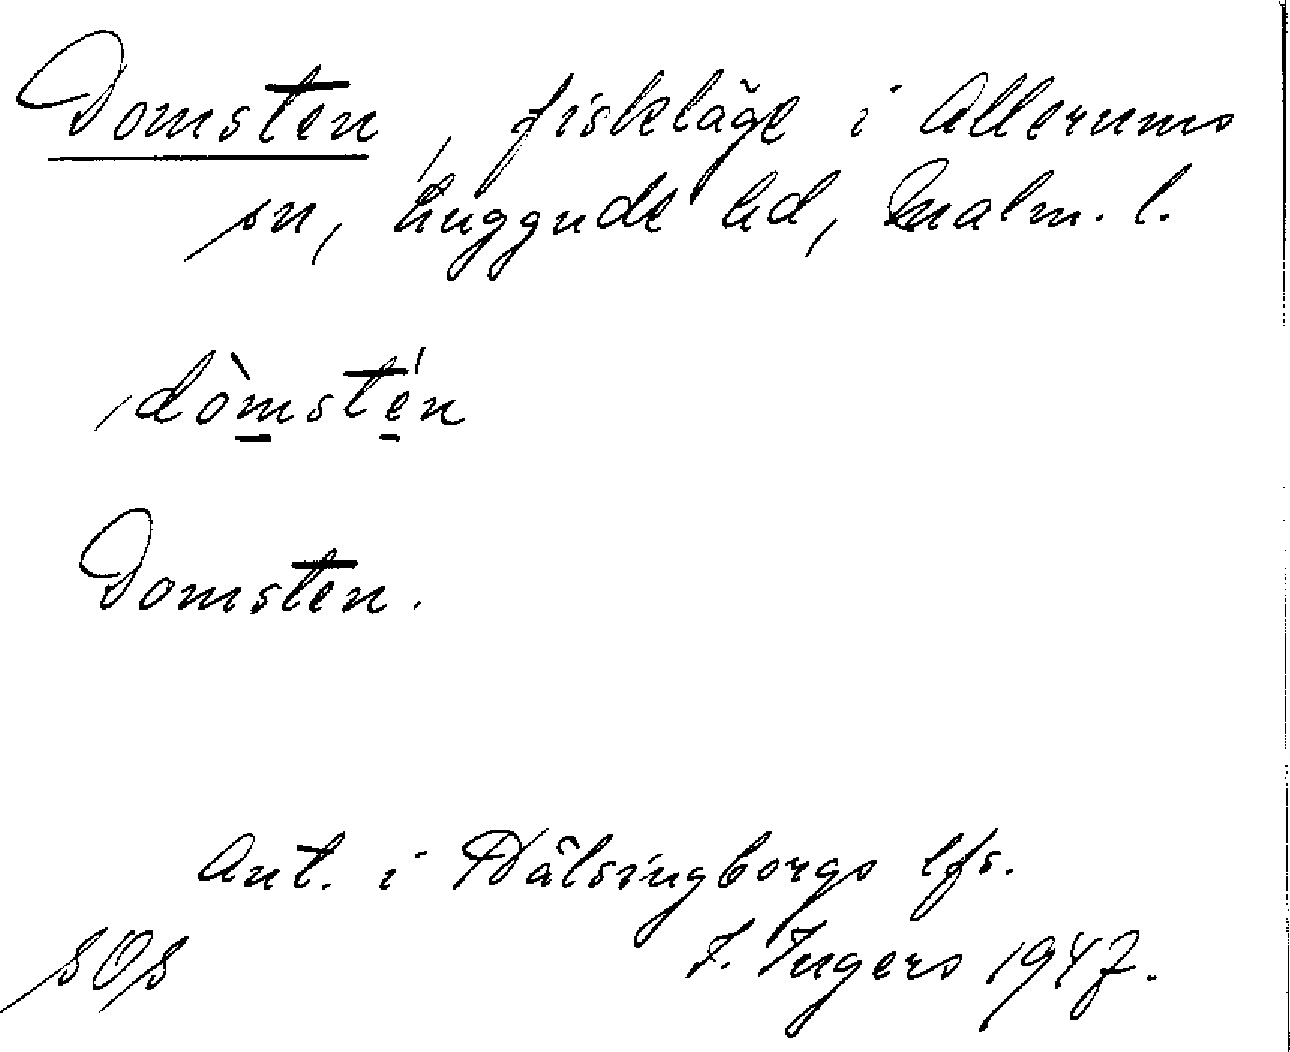 Domsten, fiskeläge i Allerums
sn, Luggude hd, Malm. l.
dòmstén
Domsten.
Ant. i Hälsingborgs lfs.
I. Ingers 1947.
SOS